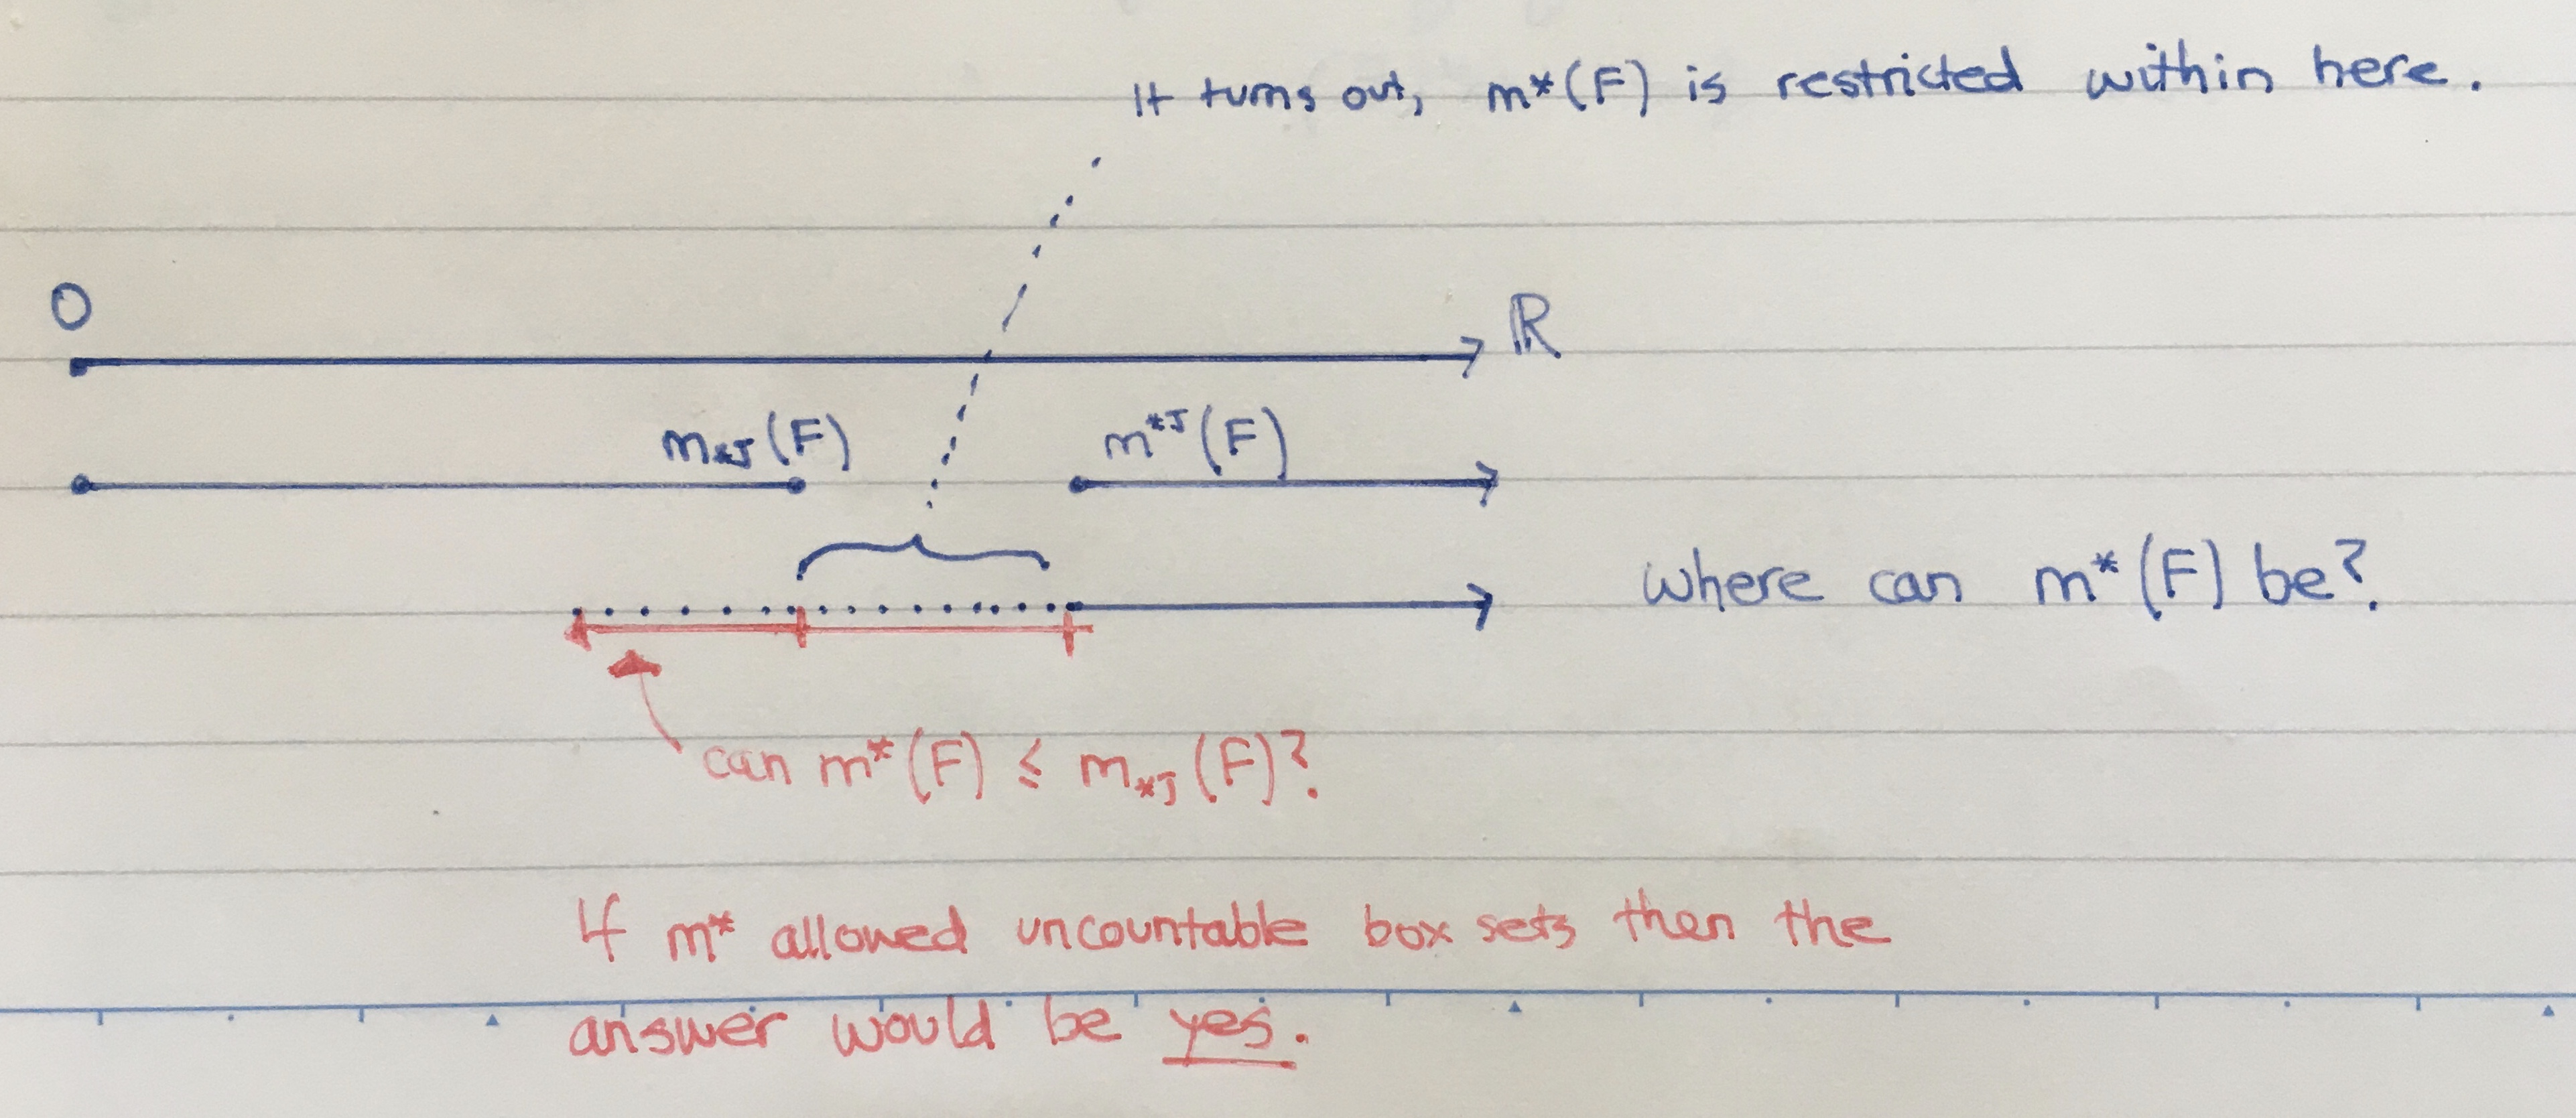 It turns out, m*(F) is restricted within here.
0
ℝ
m⁎J(F) m*ᴶ(F)
where can m*(F) be?
can m*(F) ≤ m⁎J(F)?
If m* allowed uncountable box sets then the
answer would be yes.